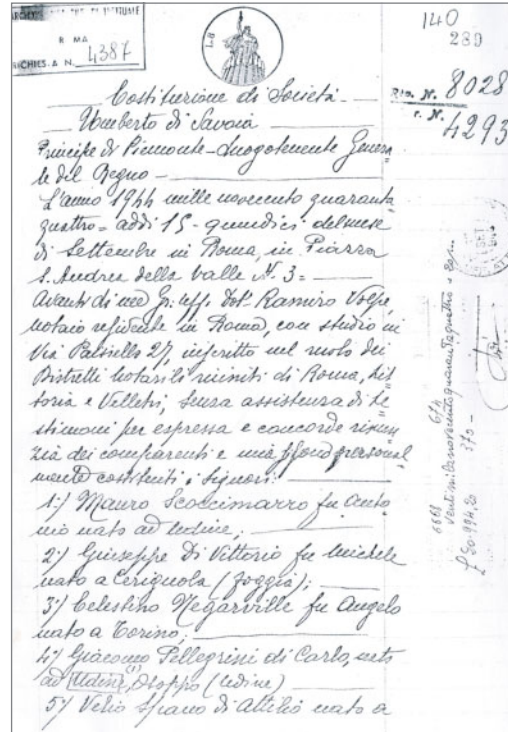 R MA
RICHIES. A N. 4387
L.B
140
289
Rep. N. 8028
r. N. 4293
Costituzione di Società
Umberto di Savoia
Principe di Piemonte - Luogotenente Genera
le del Regno
L'anno 1944 mille novecento quaranta
quattro = addì 15 - quindici del mese
di Settembre in Roma, in Piazza
S. Andrea della Valle N. 3 =
Avanti di me Gr: Uff. Dot. Ramiro Volpe,
notaio residente in Roma, con studio in
Via Paisiello 27, inscritto nel ruolo dei
Distretti notarili riuniti di Roma, Lit
toria e Velletri, senza assistenza di te
stimoni per espressa e concorde rinun
zia dei comparenti e mia sono personal
mente costituiti i Signori:
1°) Mauro Scoccimarro fu Anto
nio nato ad Udine;
2°) Giuseppe Di Vittorio fu Michele
nato a Cerignola (Foggia);
3°) Celestino Negarville fu Angelo
nato a Torino;
4°) Giacomo Pellegrini di Carlo, nato
ad Udine, Osoppo (Udine)
5°) Velio Spano di Attilio nato a
6868 674
370 -